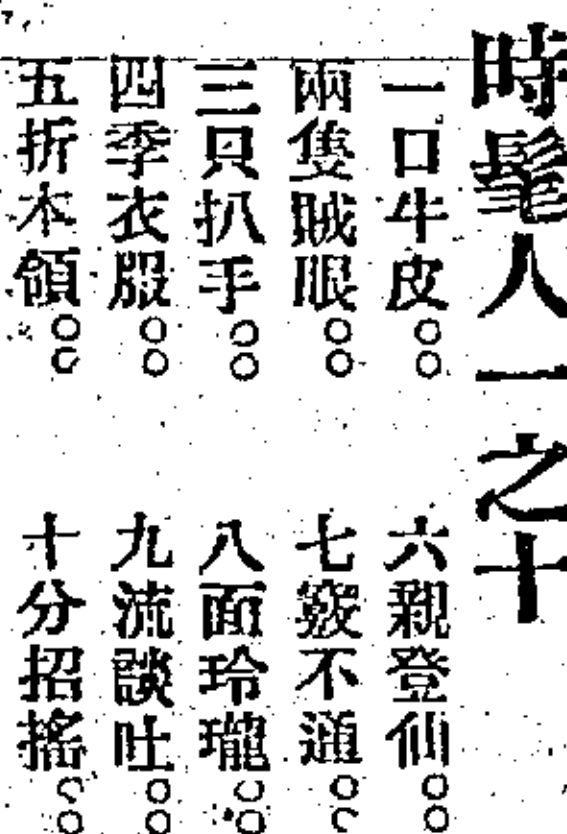 時髦人一之十
一口牛皮○○
兩隻賊眼○○
三只扒手○○
四季衣服○○
五折本領○○
六親登仙○○
七竅不通○○
八面玲瓏○○
九流談吐○○
十分招搖○○